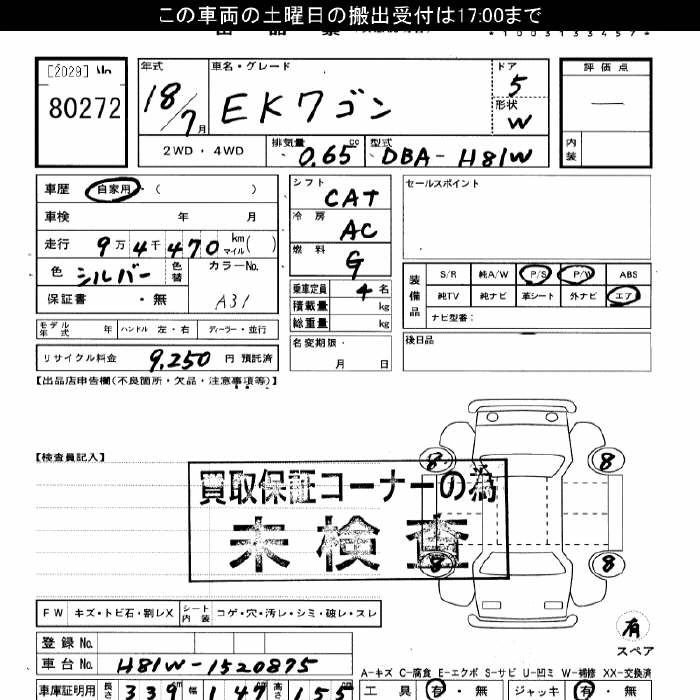 この車両の土曜日の搬出受付は17:00まで
[2029] No
80272
年式 18/7月
車名・グレード EKワゴン
ドア 5
形状 W
評価点 —
内装
2WD・4WD
排気量 0.65 cc
型式 DBA-H81W
車歴 自家用 ( )
車検 年 月
走行 9万4千470 km マイル ( )
色 シルバー 色替
カラーNo. A31
保証書 ・無
シフト CAT
冷房 AC
燃料 G
乗車定員 4名
積載量 kg
総重量 kg
セールスポイント
装備品
S/R 純A/W P/S P/W ABS
純TV 純ナビ 革シート 外ナビ エア
ナビ型番:
モデル年式 年 ハンドル 左・右 ディーラー・並行
名変期限・ 月 日
後日品
リサイクル料金 9,250 円 預託済
【出品店申告欄(不良箇所・欠品・注意事項等)】
【検査員記入】
買取保証コーナーの為
未検査
8 8
8 8
FW キズ・トビ石・割レX シート内装 コゲ・穴・汚レ・シミ・破レ・スレ
有
スペア
登録No.
車台No. H81W-1520875
A-キズ C-腐食 E-エクボ S-サビ U-凹ミ W-補修 XX-交換済
車庫証明用 長さ 339 幅 147 高さ 155
工具 有・無 ジャッキ 有・無